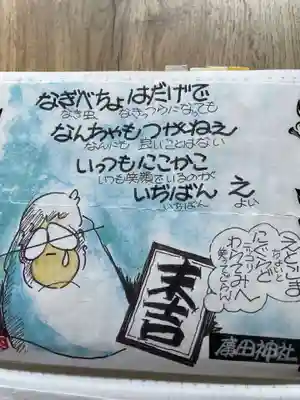 なぎべちょはだげで
なき虫、なきっつらになっても
なんちゃもつかねえ
なんにも良いことはない
いっつもにこかこ
いつも笑顔でいるのが
いぢばん え
いちばん よい
末吉
廣田神社
えとこま
ちょいと
にへらど
ニッコリ
わらてみへ
笑ってごらん